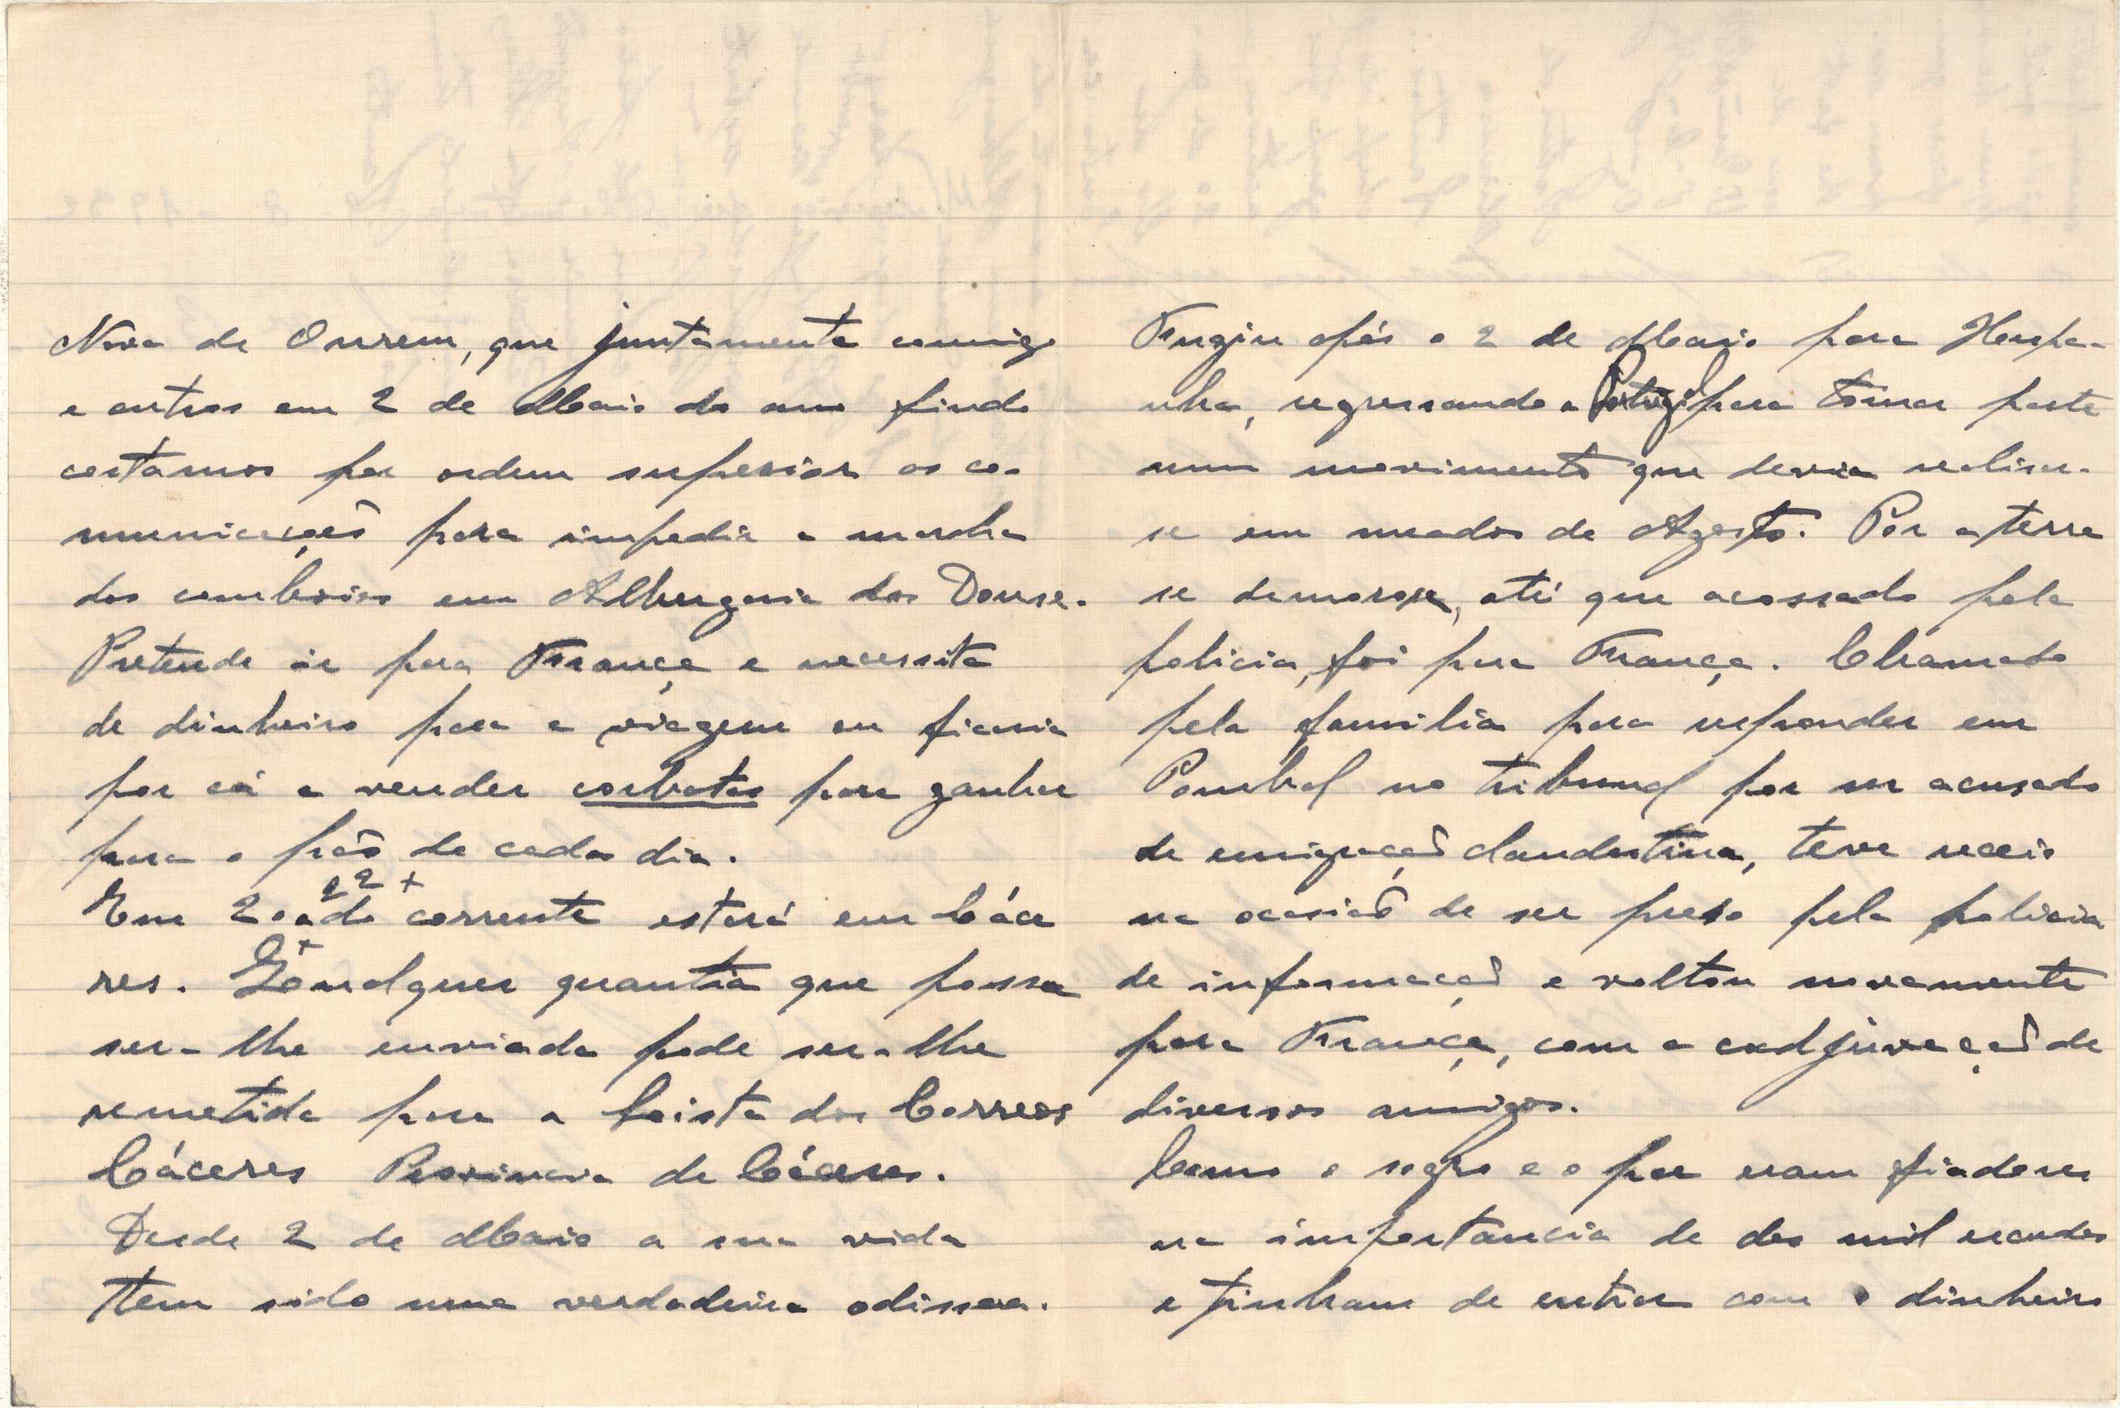 Nova de Ourem, que juntamente comigo
e outros em 2 de Maio do ano findo
cortamos por ordem superior as co-
municações para impedir a marcha
dos comboios em Albergaria dos Douze.
Pretende ir para França e necessita
de dinheiro para a viagem ou ficaria
por cá a vender corbatas para ganhar
para o pão de cada dia.
Em 22 do corrente estará em Cáce
res. Qualquer quantia que possa
ser-lhe enviada pode ser-lhe
remetida para a Loista dos Correos
Cáceres Provincia de Cáceres.
Desde 2 de Maio a sua vida
tem sido uma verdadeira odissea.
Fugiu após o 2 de Maio para Hespa-
nha, regressando a Portugal para tomar parte
num movimento que devia realisar-
se em meados de Agosto. Por a terra
se demorou, até que acossado pela
policia, foi para França. Chamado
pela familia para responder em
Pombal no tribunal por ser acusado
de emigração clandestina, teve receio
na ocasião de ser preso pela policia
de informação e voltou novamente
para França, com a coadjuvação de
diversos amigos.
Como o sogro e o pae eram fiadores
na importancia de des mil escudos
e tinham de entrar com o dinheiro